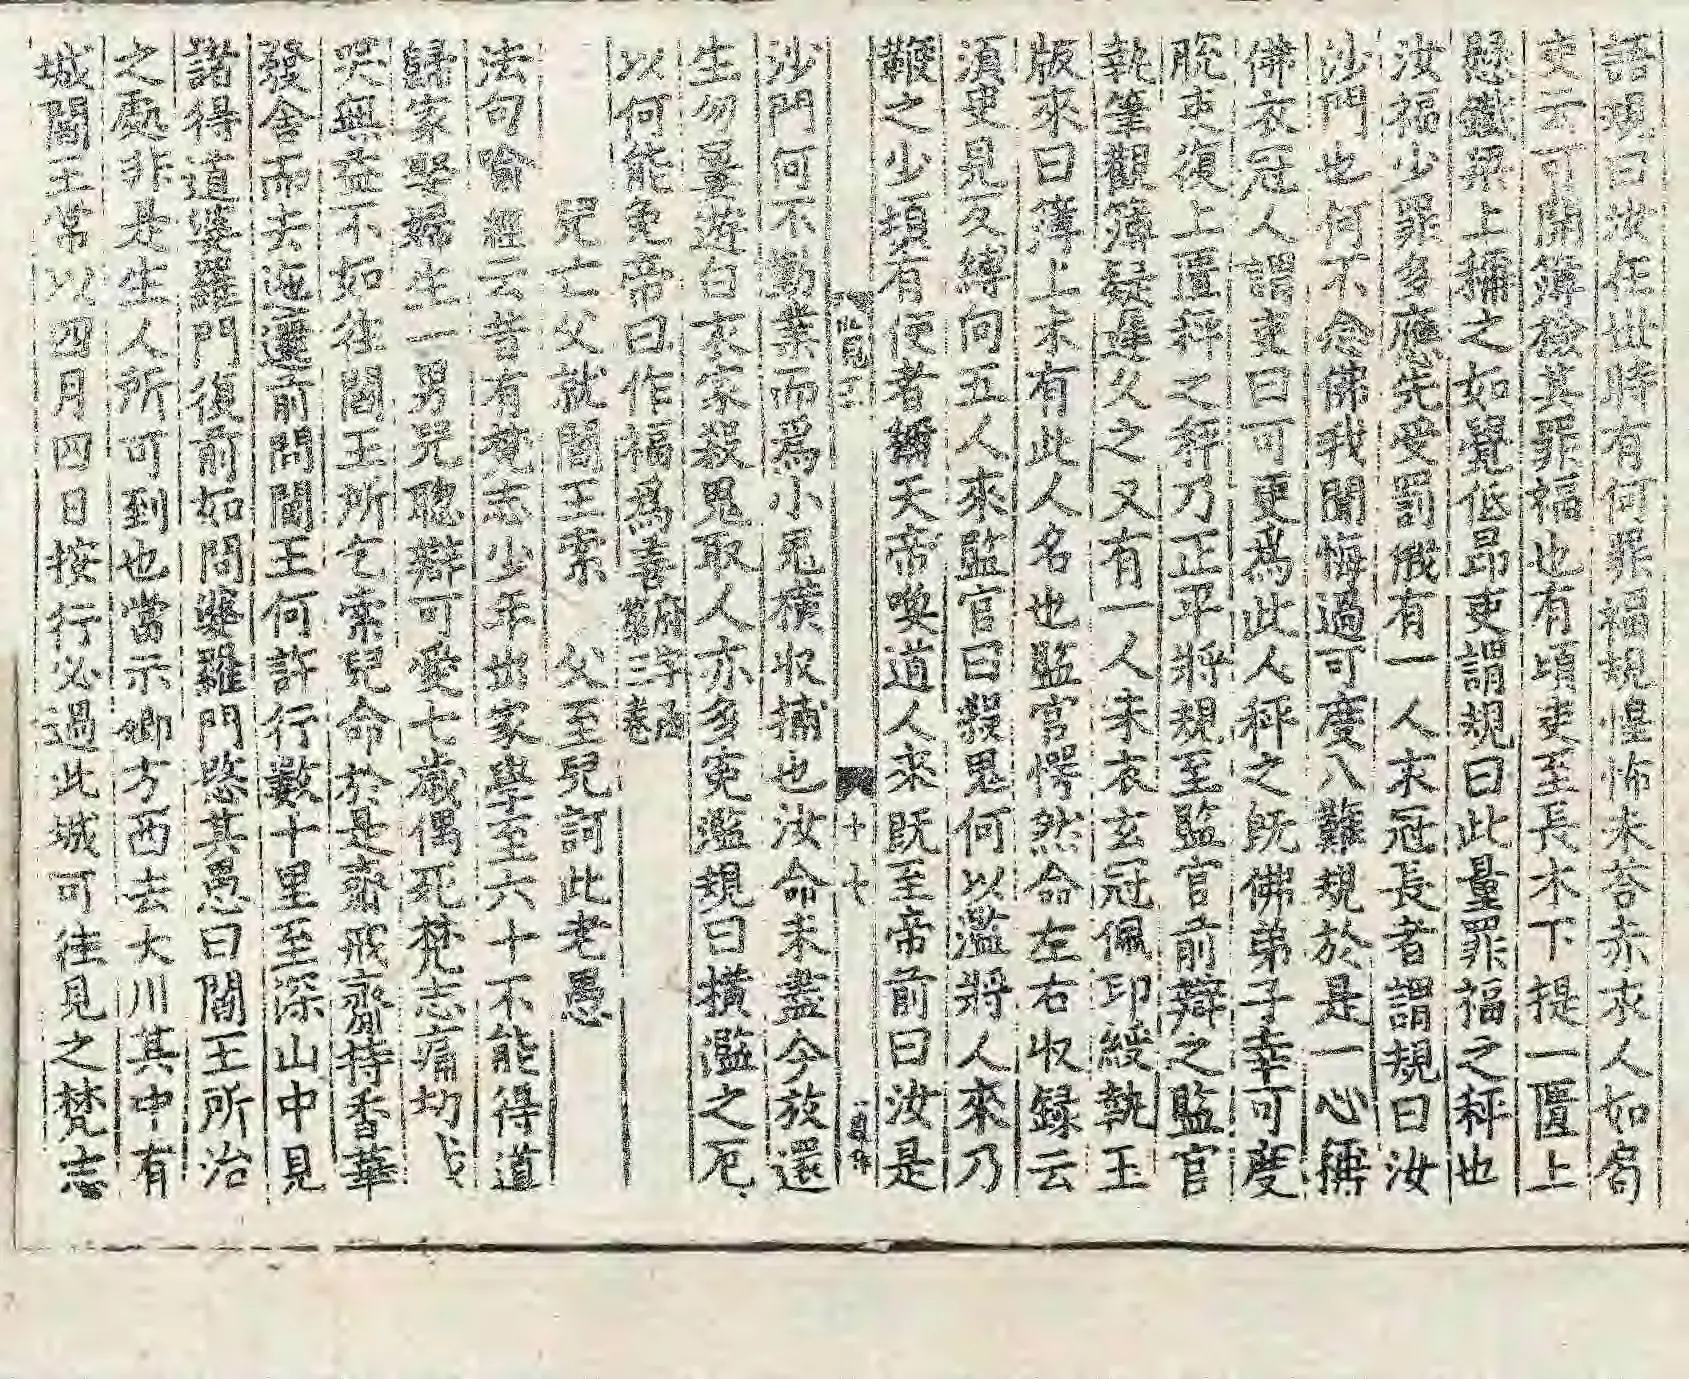 語規曰汝在世時有何罪福規惶怖未荅赤衣人如局
吏云可開簿檢其罪福也有頃吏至長木下提一匱上
懸鐵梁上稱之如覺低昂吏謂規曰此量罪福之秤也
汝福少罪多應先受罰俄有一人衣冠長者謂規曰汝
沙門也何不念佛我聞悔過可度八難規於是一心稱
佛衣冠人謂吏曰可更爲此人秤之旣佛弟子幸可度
脫吏復上匱秤之秤乃正平將規至監官前辯之監官
執筆觀簿疑遲久之又有一人朱衣玄冠佩印綬執玉
版來曰簿上未有此人名也監官愕然命左右収録云
須臾見反縛向五人來監官曰殺鬼何以濫將人來乃
鞭之少頃有使者稱天帝喚道人來旣至帝前曰汝是
沙門何不勤業而爲小鬼橫収捕也汝命未盡今放還
生勿屢遊白衣家殺鬼取人亦多寃濫規曰橫濫之厄
以何能免帝曰作福爲善府字函第三卷
兒亡父就閻王索 父至兒訶此老愚
法句喻經云昔有梵志少年出家學至六十不能得道
歸家娶婦生一男兒聰辯可愛七歲偶死梵志痛切
哭無益不如往閻王所乞索兒命於是齋戒齋持香華
發舍而去迤邐前問閻王何許行數十里至深山中見
諸得道婆羅門復前如問婆羅門愍其愚曰閻王所治
之處非是生人所可到也當示卿方西去大川其中有
城閻王常以四月四日按行必過此城可往見之梵志
十七